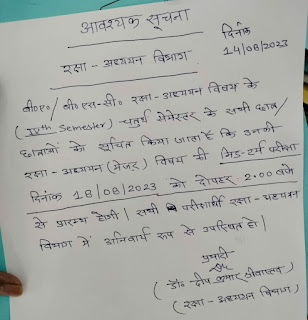 आवश्यक सूचना
दिनांक
14/08/2023
रक्षा - अध्ययन विभाग
बी०ए०/बी०एस-सी० रक्षा-अध्ययन विषय के
(IVth Semester) चतुर्थ सेमेस्टर के सभी छात्र/
छात्राओं को सूचित किया जाता है कि उनकी
रक्षा-अध्ययन (मेजर) विषय की मिड-टर्म परीक्षा
दिनांक 18/08/2023 को दोपहर 2.00 बजे
से प्रारम्भ होगी। सभी परीक्षार्थी रक्षा-अध्ययन
विभाग में अनिवार्य रूप से उपस्थित हों।
प्रभारी
(डॉ० श्रीवास्तव)
(रक्षा-अध्ययन विभाग)